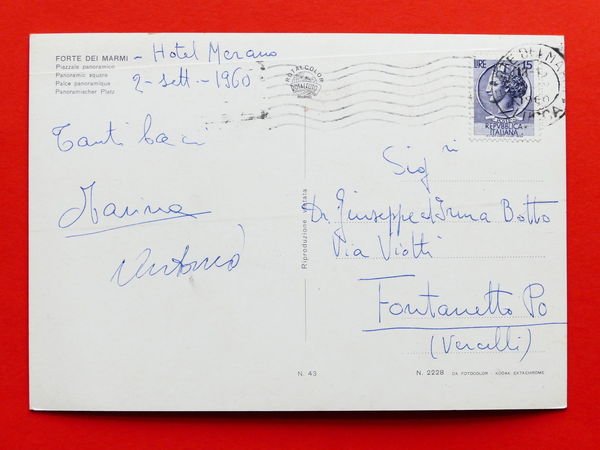 FORTE DEI MARMI - Hotel Merano
Piazzale panoramico
Panoramic square
Palce panoramique
Panoramischer Platz
2 - sett - 1960
ROTALCOLOR
ROTALFOTO
LIRE 15
POSTE
REPVBBLICA
ITALIANA
Tanti baci
Marina
Antonio
Sig.ri
Dr. Giuseppe ed Irma Botto
Via Viotti
Fontanetto Po
(Vercelli)
Riproduzione vietata
N. 43
N. 2228 DA FOTOCOLOR - KODAK EKTACHROME